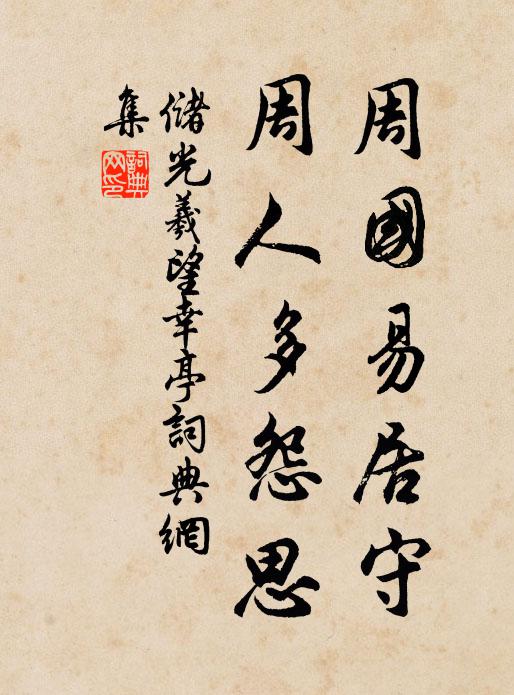 周國易居守
周人多怨思
儲光羲望幸亭詞典網
集
詞典
网印